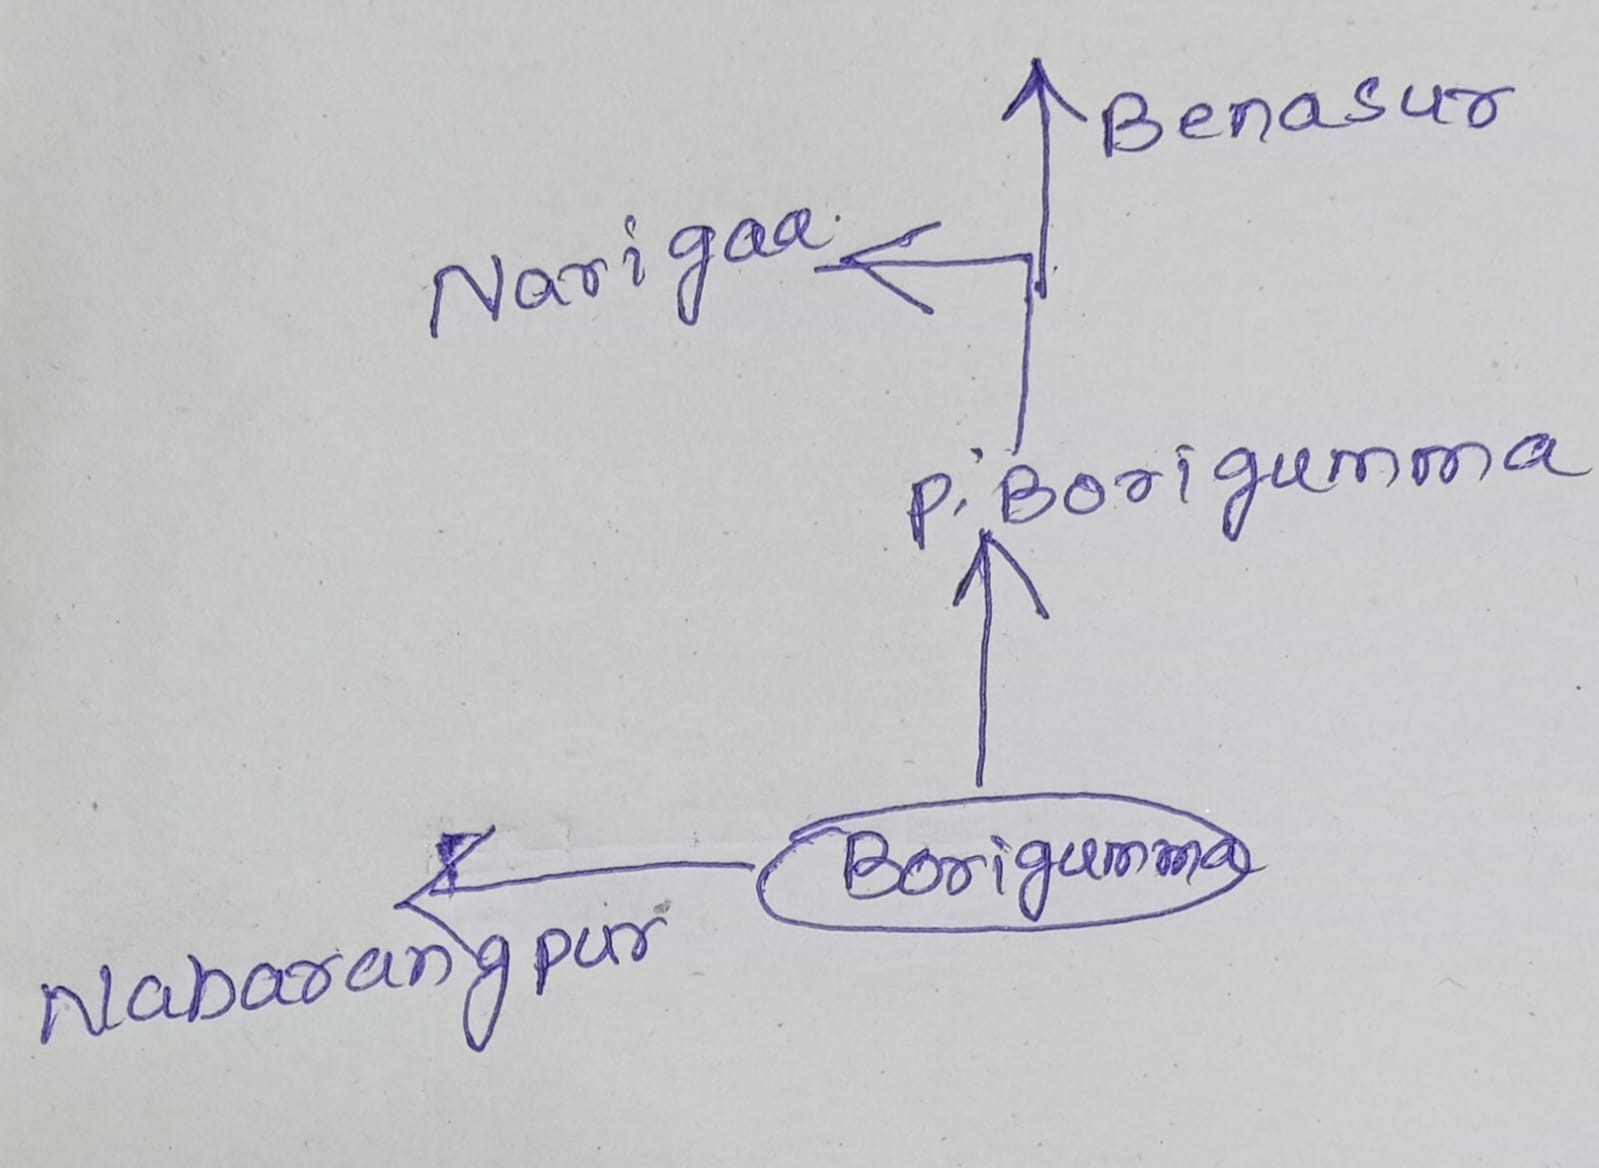 Benasur
Narigaa
P. Borigumma
Borigumma
Nabarangpur